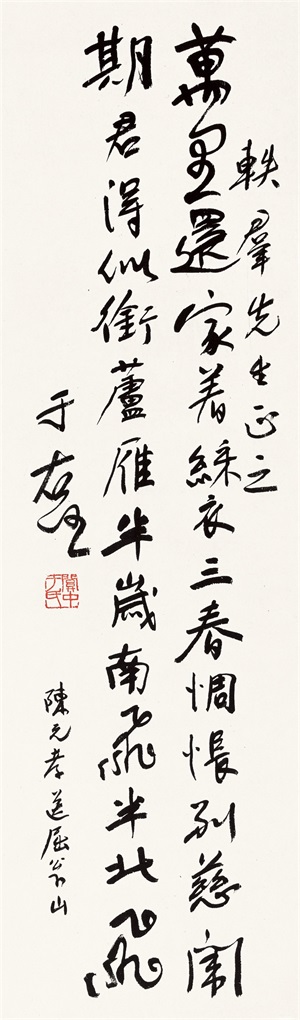 軼羣先生正之
萬里還家着綵衣三春惆悵別慈闈
期君得似銜蘆雁半歲南飛半北飛
于右任
陳元孝送屈翁山